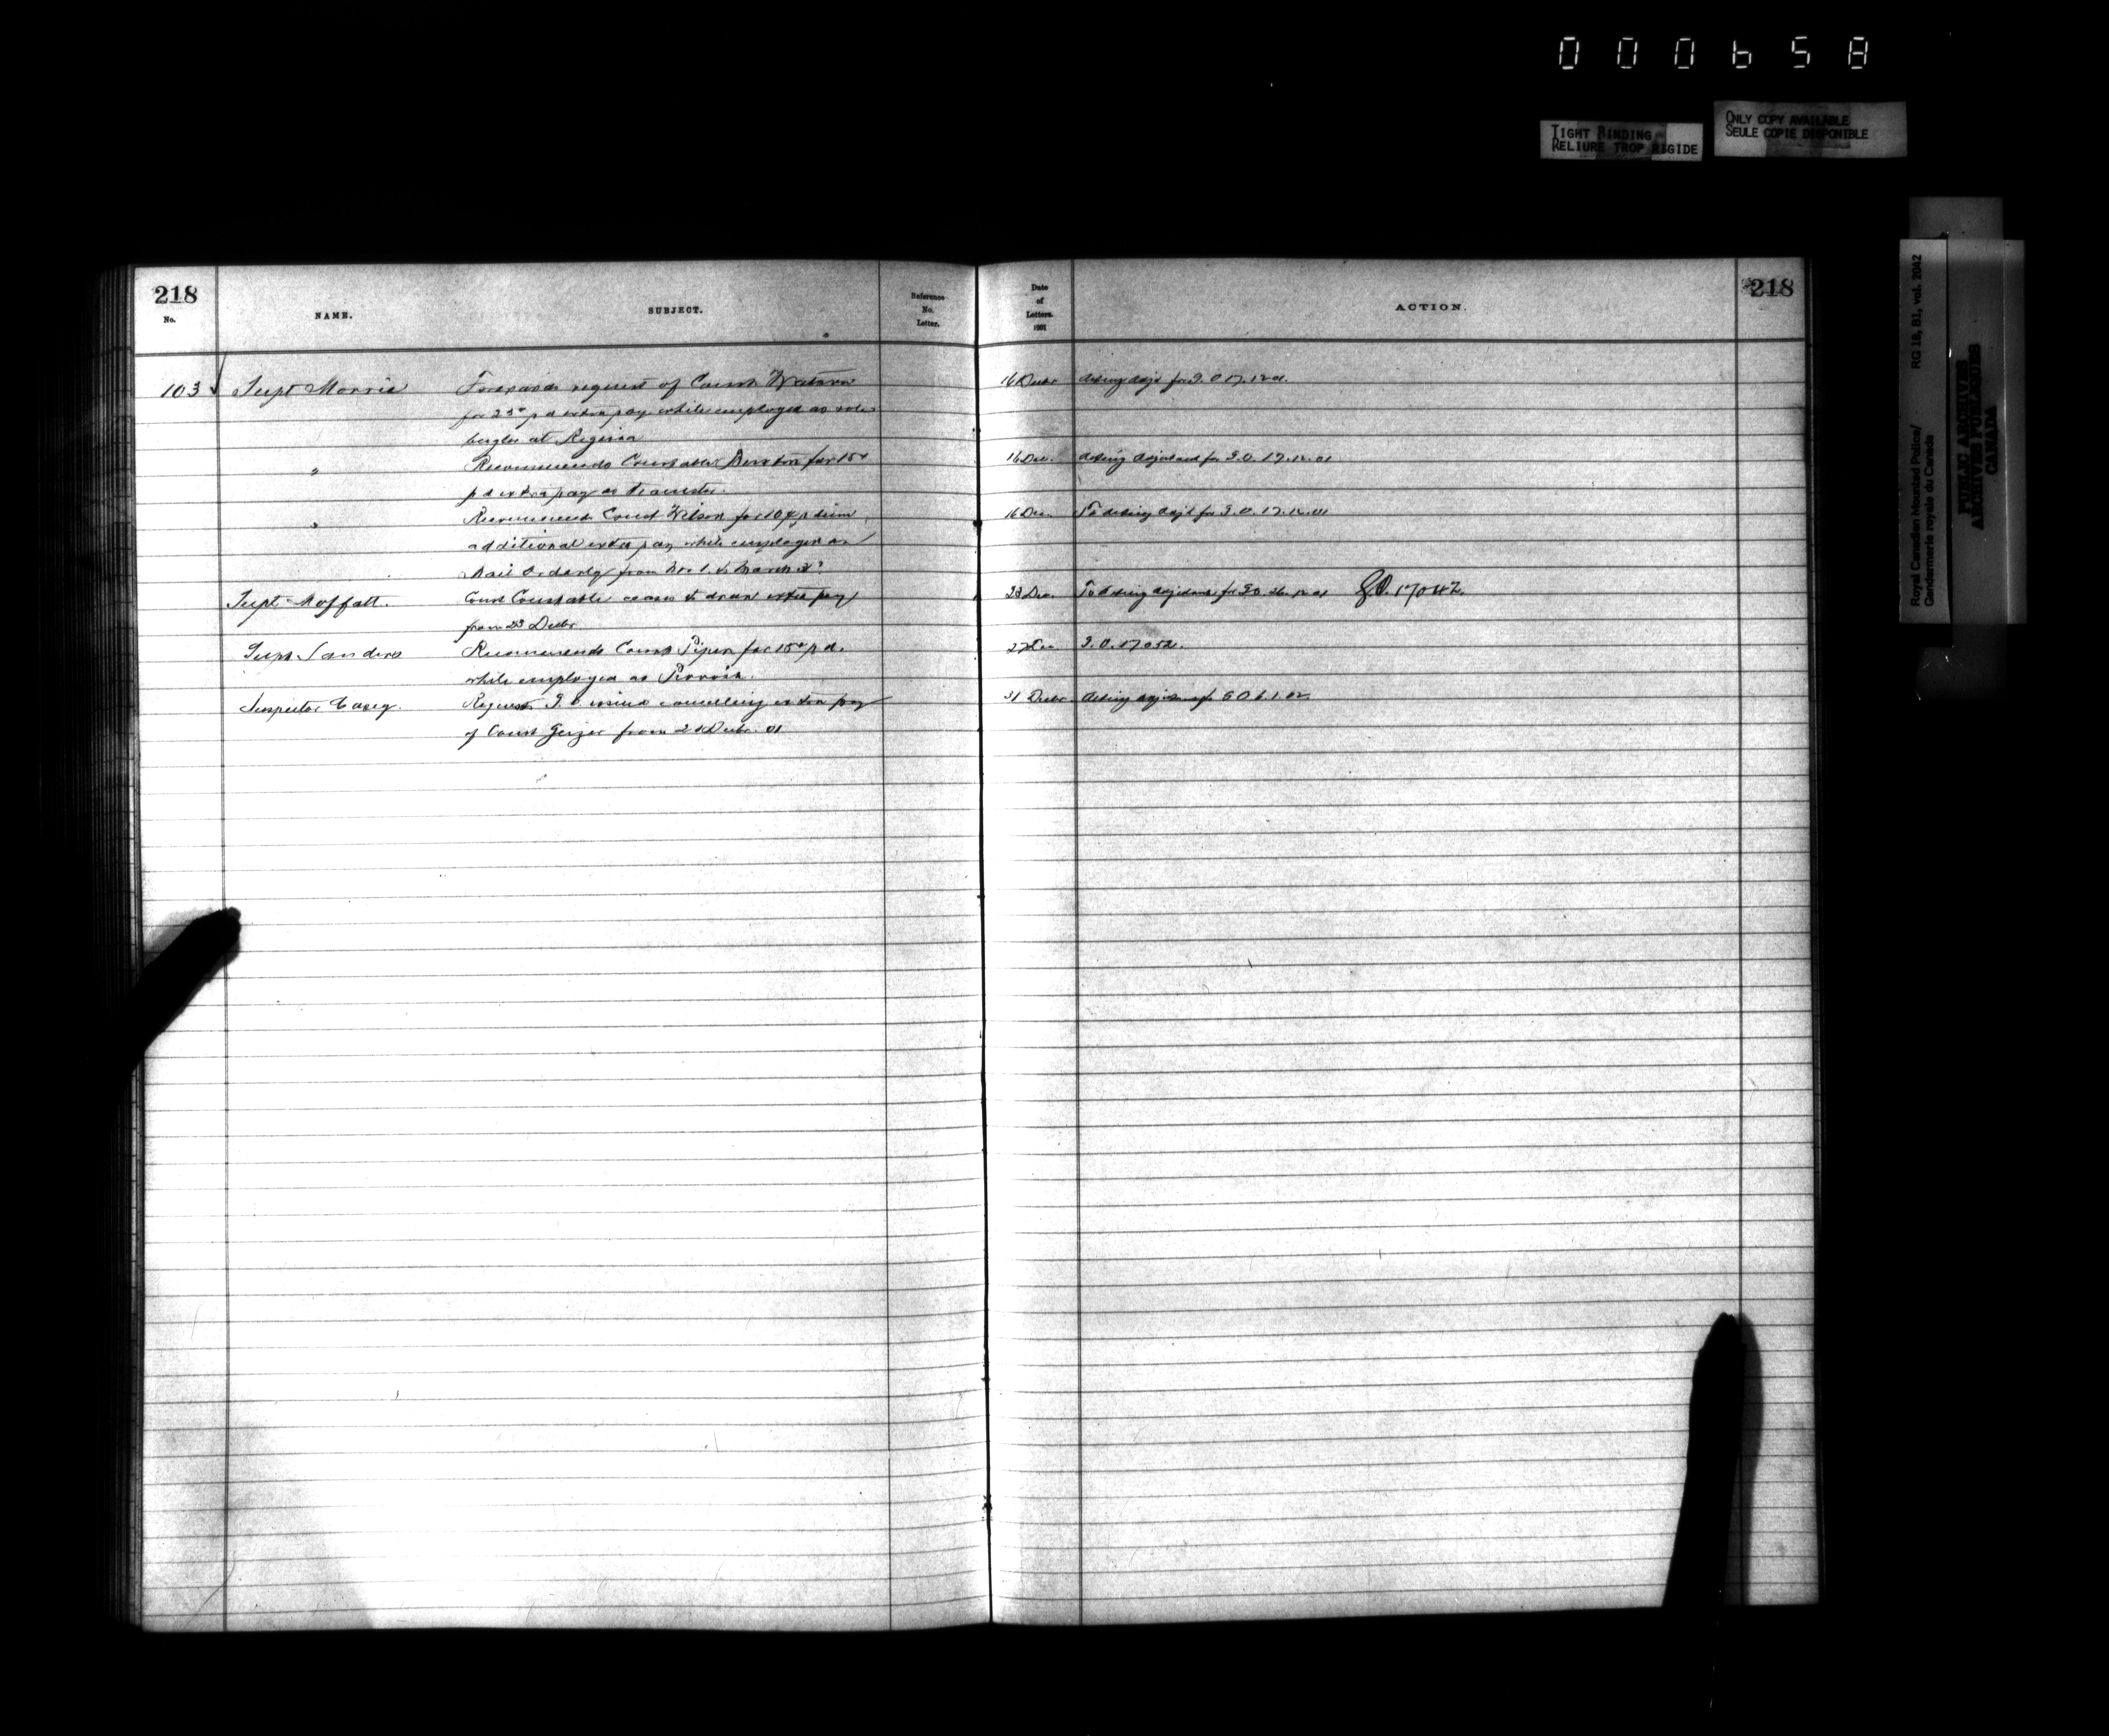 000658
TIGHT BINDING
RELIURE TROP RIGIDE
ONLY COPY AVAILABLE
SEULE COPIE DISPONIBLE
Royal Canadian Mounted Police/ RG 18, B1, vol. 2042
Gendarmerie royale du Canada
PUBLIC ARCHIVES
ARCHIVES PUBLIQUES
CANADA
218
No. NAME. SUBJECT. Reference No. Letter. Date of Letters. 1901 ACTION. 218
103 Supt Morris Forwards request of Const Watson 16 Decbr Acting Adjt for G.O 17.12.01.
for 25c p d extra pay while employed as
bugler at Regina
" Recommends Constable for 15c 16 Dec. Acting Adjutant for G.O. 17.12.01
p d extra pay as teamster.
" Recommends Const Wilson for 10 ¢ p diem 16 Dec. To Acting Adjt for G.O. 17.12.01
additional extra pay while employed as
Mail Orderly from Nov 1. to March 31
Supt Moffatt. Const Constable ceases to draw extra pay 23 Dec. To Acting Adjutant for G.O. 26.12.01 G.O. 17042.
from 23 Decbr
Supt Sanders Recommends Const Piper for 15c p d. 27 Dec G.O. 17052.
while employed as
Inspector Casey. Requests G.O issued cancelling extra pay 31 Decbr. Acting Adjutant for G.O 6.1.02
of Const Geizer from 21 Decbr. 01